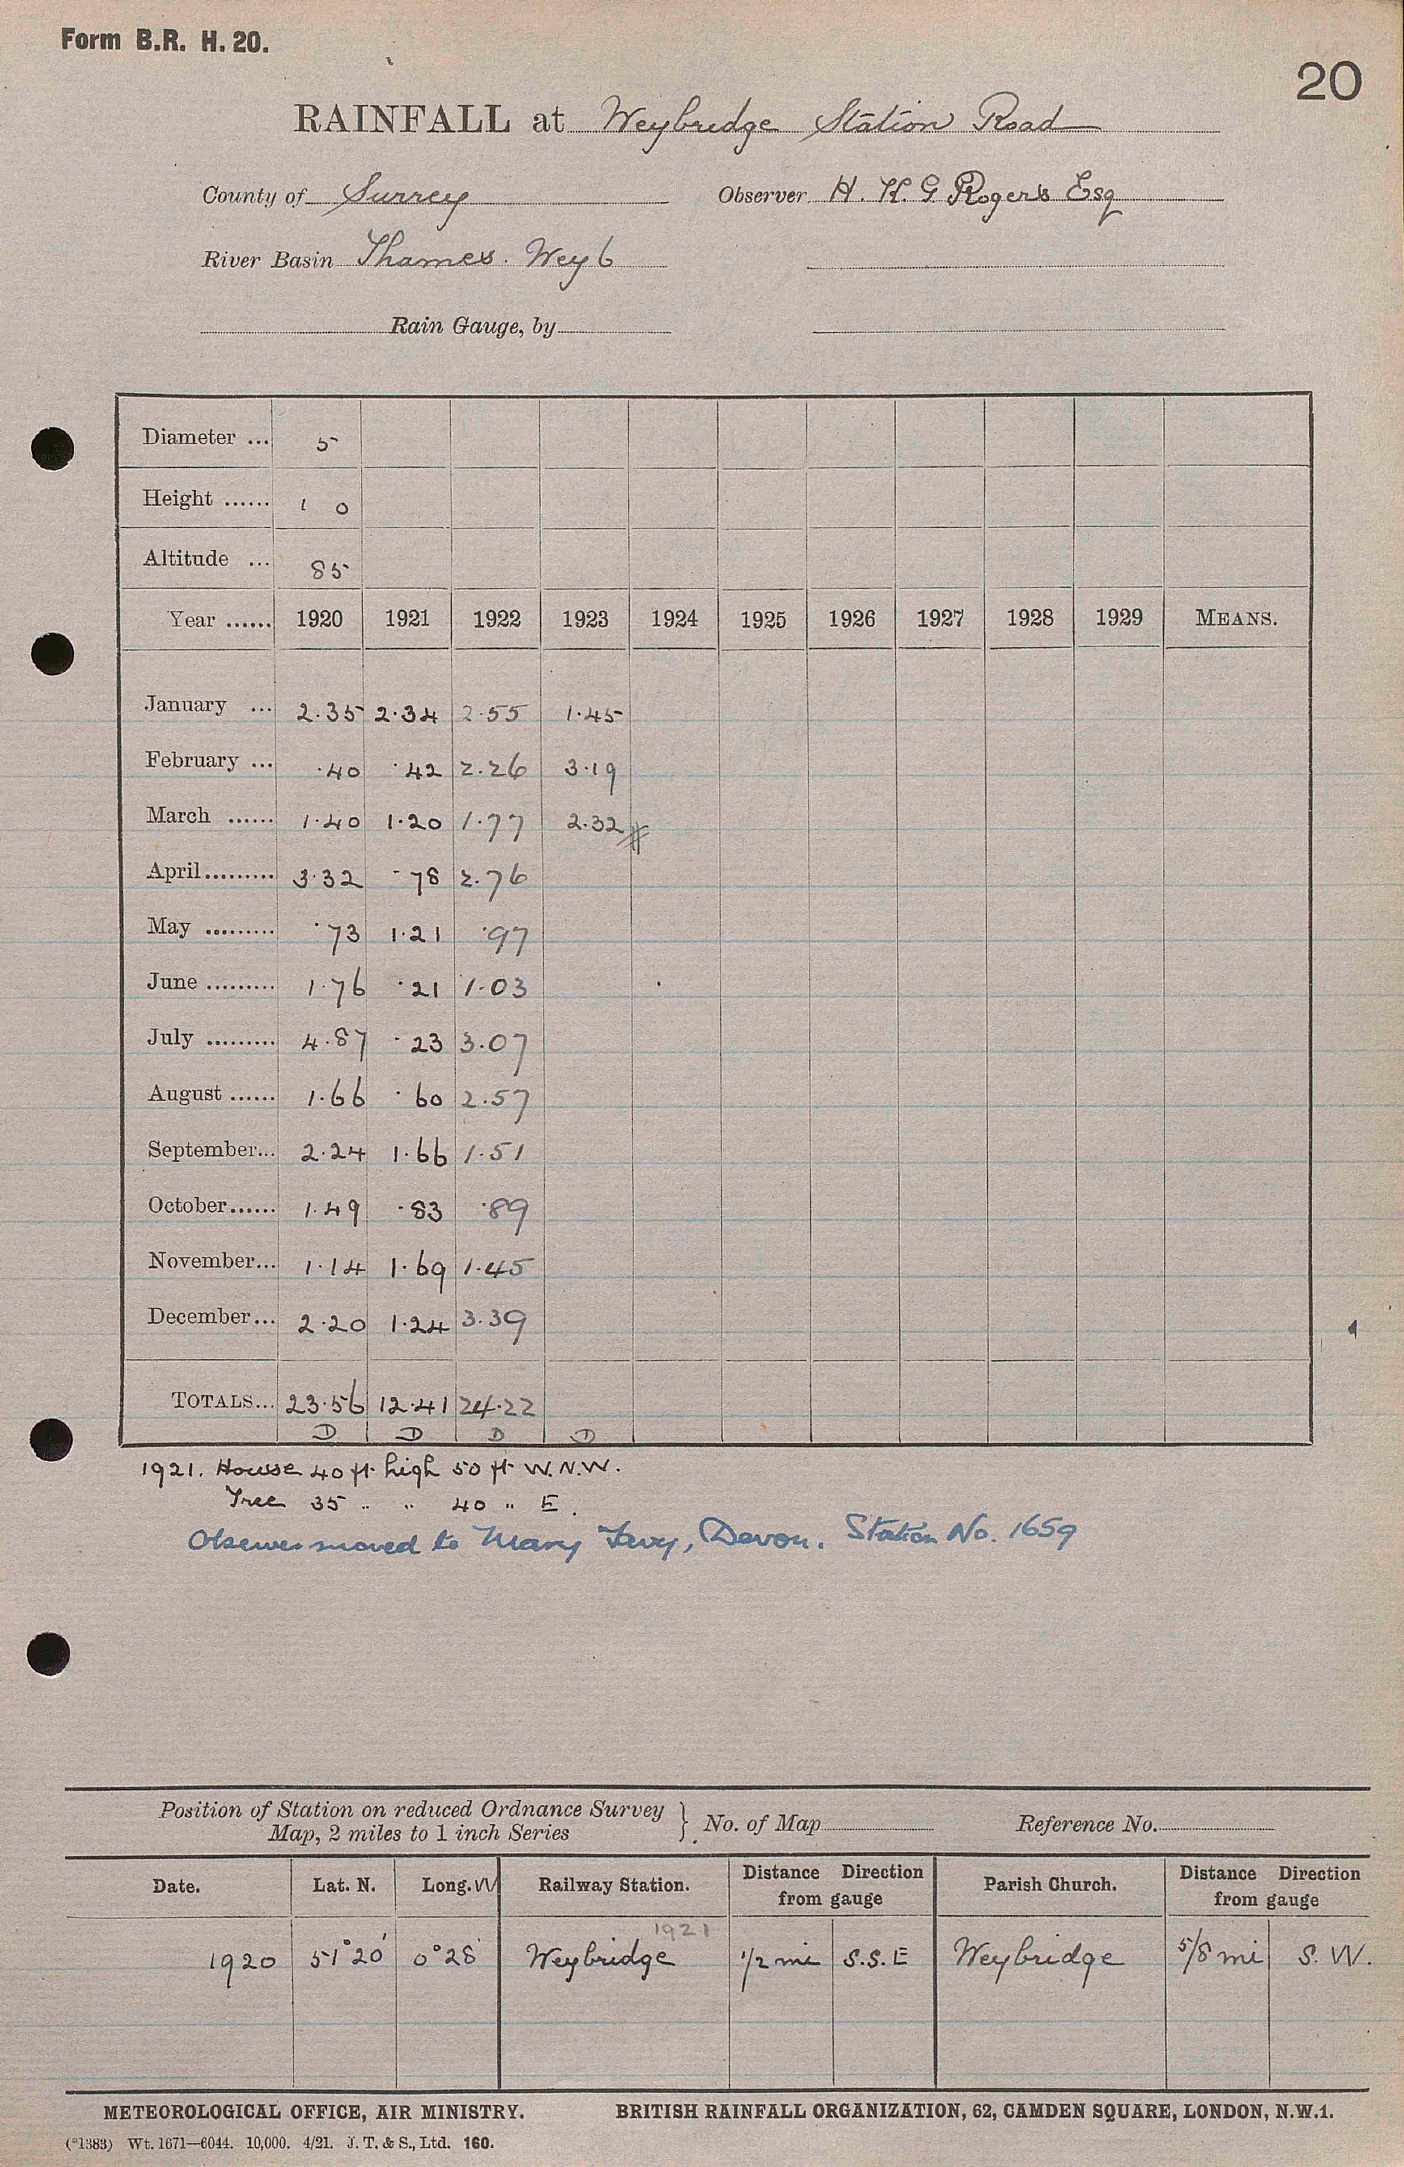 Form B.R. H. 20.
20
RAINFALL at Weybridge Station Road
County of Surrey Observer H. K. G Rogers Esq
River Basin Thames. Wey 6
Rain Gauge, by
Diameter ... 5
Height ...... 1 0
Altitude ... 85
Year ...... 1920 1921 1922 1923 1924 1925 1926 1927 1928 1929 MEANS.
January ... 2.35 2.34 2.55 1.45
February ... .40 .42 2.26 3.19
March ...... 1.40 1.20 1.77 2.32
April......... 3.32 .78 2.76
May ......... .73 1.21 .97
June ......... 1.76 .21 1.03
July ......... 4.87 .23 3.07
August ...... 1.66 .60 2.57
September... 2.24 1.66 1.51
October...... 1.49 .83 .89
November... 1.14 1.69 1.45
December... 2.20 1.24 3.39
TOTALS... 23.56 12.41 24.22
D D D D
1921. House 40 ft. high 50 ft W.N.W.
Tree 35 " " 40 " E.
Observer moved to Mary Tavy, Devon. Station No. 1659
Position of Station on reduced Ordnance Survey
Map, 2 miles to 1 inch Series } No. of Map Reference No.
Date. Lat. N. Long. W Railway Station. Distance Direction from gauge Parish Church. Distance Direction from gauge
1921
1920 51°20' 0°28' Weybridge 1/2 mi S.S.E Weybridge 5/8 mi S.W.
METEOROLOGICAL OFFICE, AIR MINISTRY. BRITISH RAINFALL ORGANIZATION, 62, CAMDEN SQUARE, LONDON, N.W.1.
(*1383) Wt. 1671—6044. 10,000. 4/21. J. T. & S., Ltd. 160.